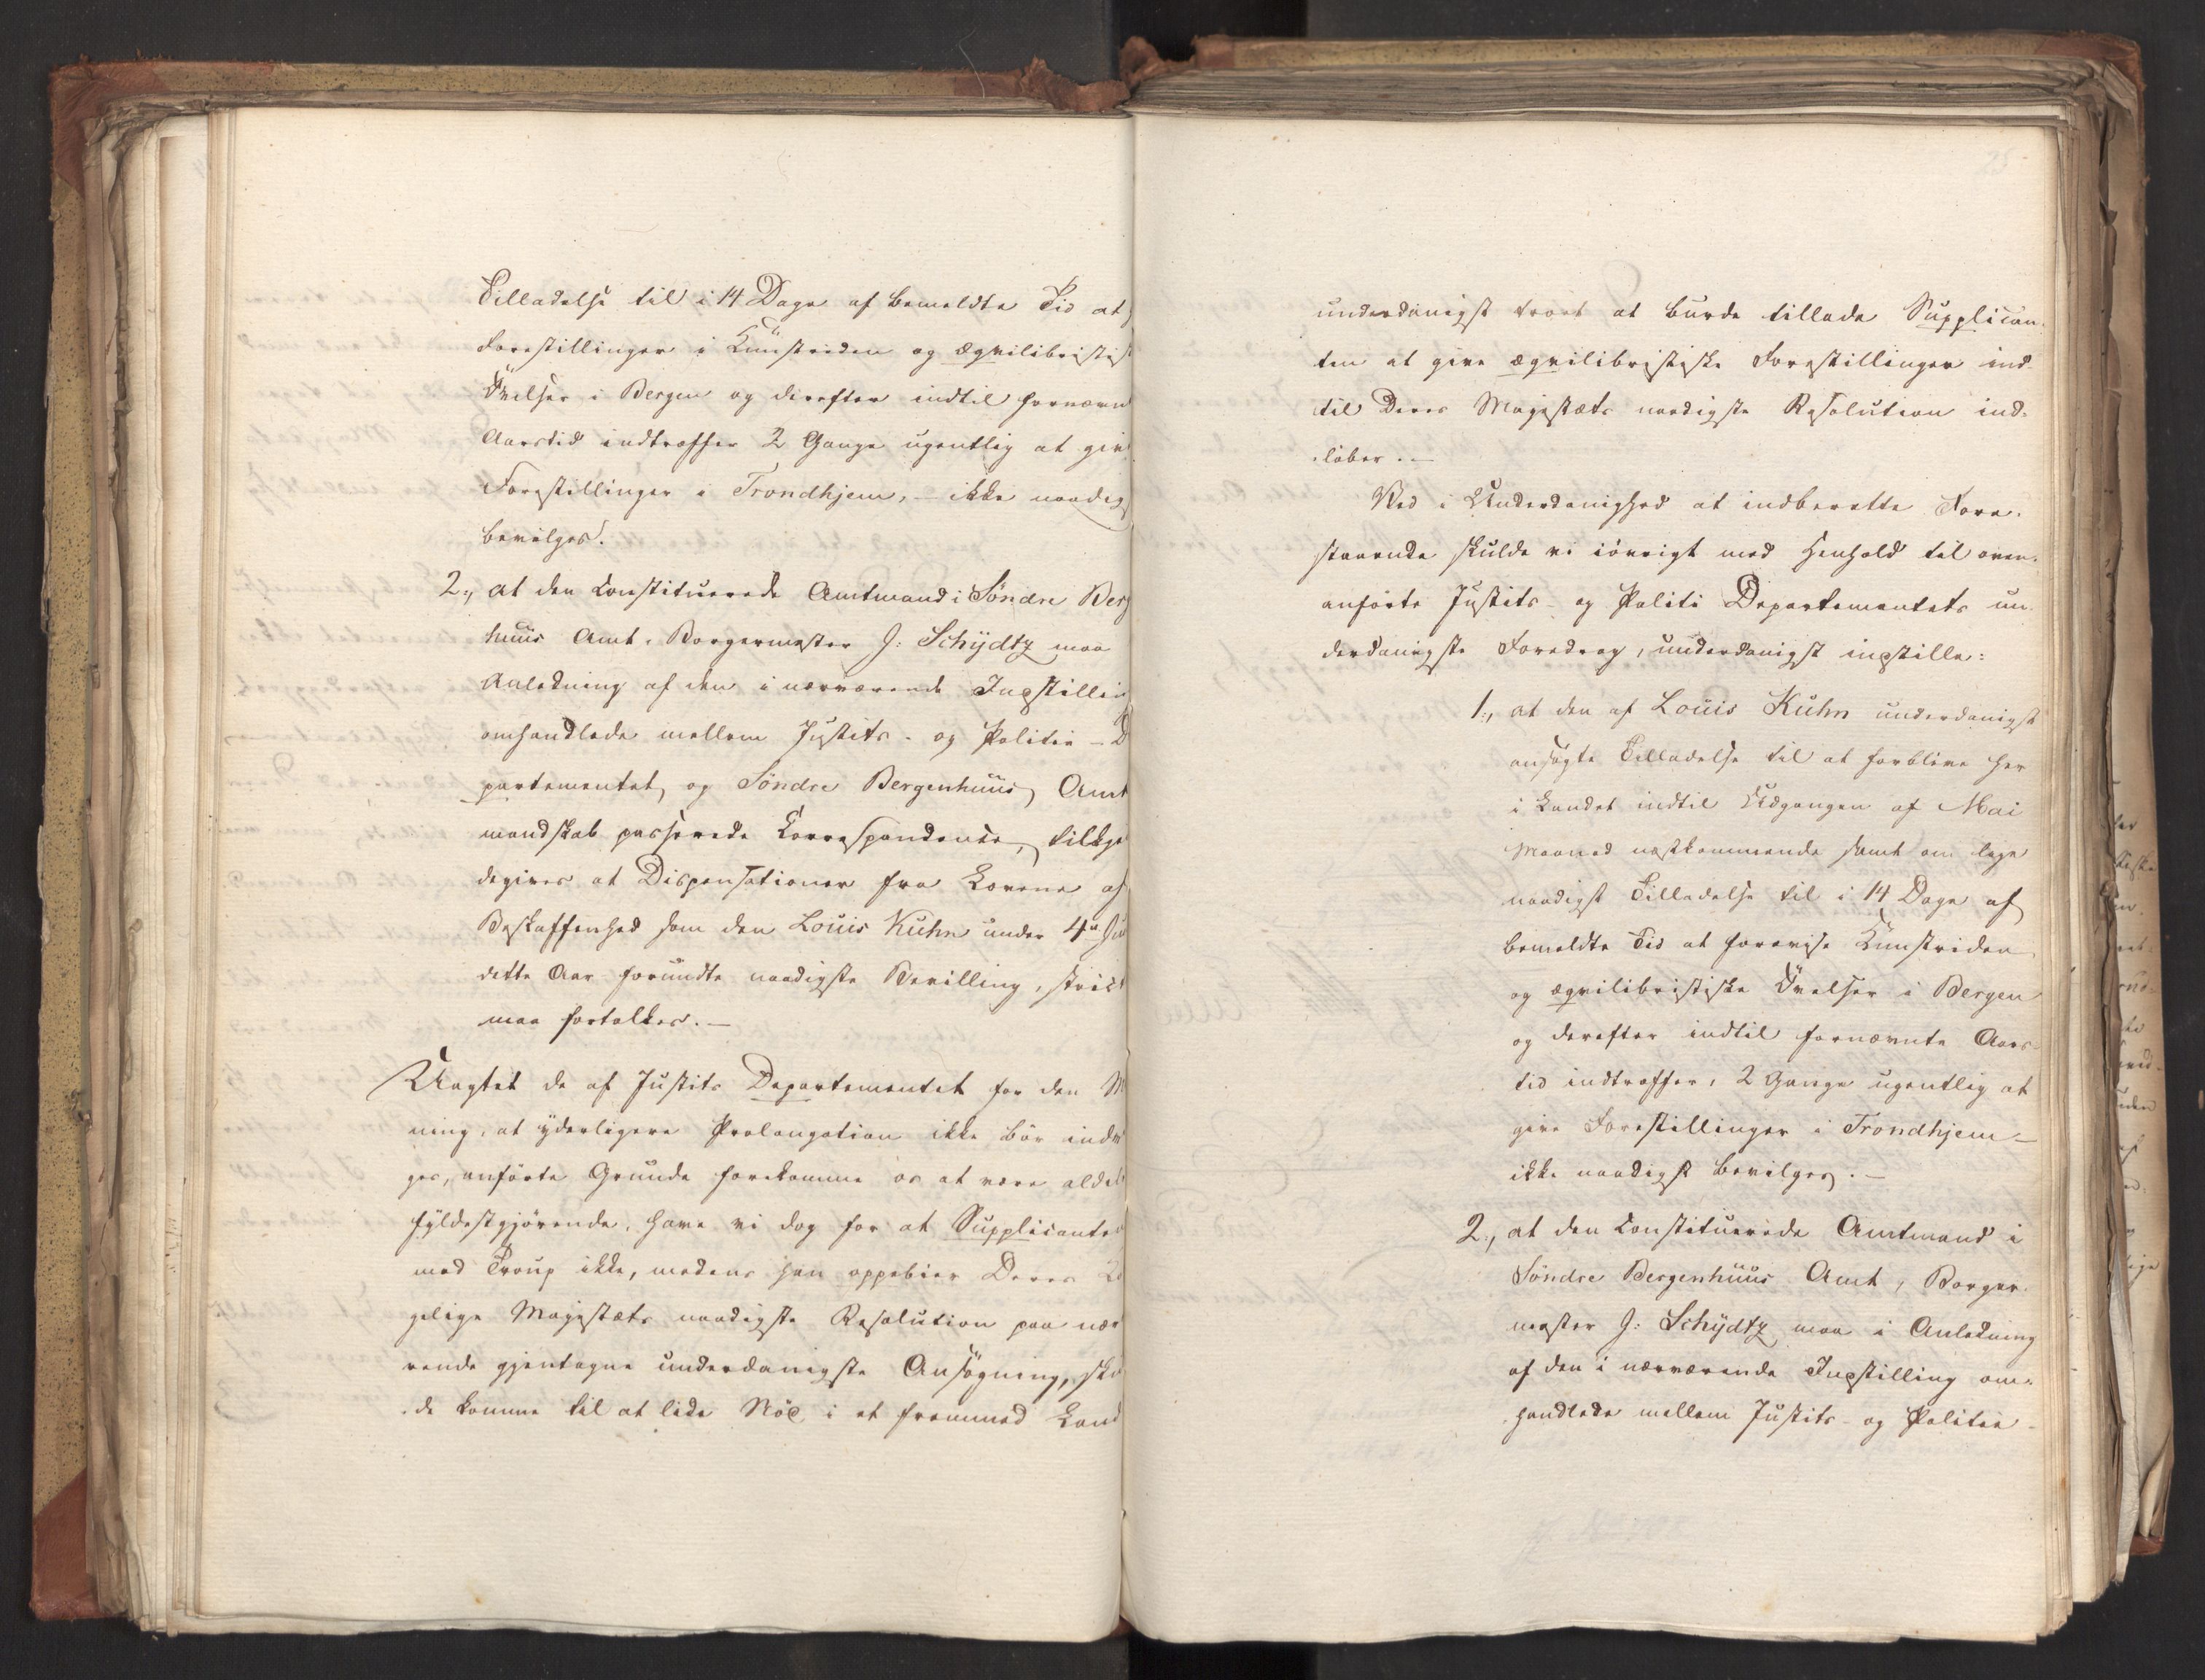 Tilladelse til i 14 Dage af bemeldte Tid at
Forestillinger i Kunstriden og æqvilibristis
Øvelser i Bergen og derefter indtil fornævn
Aarstid indtræffer 2 Gange ugentlig at giv
Forestillinger i Trondhjem, – ikke naadig
bevilges.
2., at den Constituerede Amtmand i Söndre Berg
huus Amt, Borgermester J: Schydtz maa
Anledning af den i nærværende Indstillin
omhandlede mellem Justits- og Politie-D
partementet og Söndre Bergenhuus Amt
mandskab passerede Correspondence, tilkje
degives at Dispensationer fra Lovene af
Beskaffenhed som den Louis Kuhn under 4de Ju
dette Aar forundte naadigste Bevilling, strict
maa fortolkes. –
Uagtet de af Justits Departementet for den M
ning, at yderligere Prolongation ikke bör indr
ges, anförte Grunde forekomme os at være aldel
fyldestgjörende, have vi dog for at Supplicanten
med Troup ikke, medens han oppebier Deres Ko
gelige Majestæts naadigste Resolution paa nær
rende gjentagne underdanigste Ansögning, sku
de komme til at lide Nöd i et fremmed Land
25
underdanigst troet at burde tillade Supplican-
ten at give æqvilibristiske Forestillinger ind-
til Deres Majestæts naadigste Resolution ind-
löber. –
Ved i Underdanighed at indberette Fore-
staaende skulde vi iövrigt med Henhold til oven-
anförte Justits- og Politi Departementets un-
derdanigste Foredrag, underdanigst indstille:
1., at den af Louis Kuhn underdanigst
ansögte Tilladelse til at forblive her
i Landet indtil Udgangen af Mai
Maaned næstkommende samt om lige
naadigst Tilladelse til i 14 Dage af
bemeldte Tid at forevise Kunstriden
og æqvilibristiske Övelser i Bergen
og derefter indtil fornævnte Aars-
tid indtræffer, 2 Gange ugentlig at
give Forestillinger i Trondhjem –
ikke naadigst bevilges. –
2., at den Constituerede Amtmand i
Söndre Bergenhuus Amt, Borger-
mester J: Schydtz maa i Anledning
af den i nærværende Indstilling om-
handlede mellem Justits- og Politie-